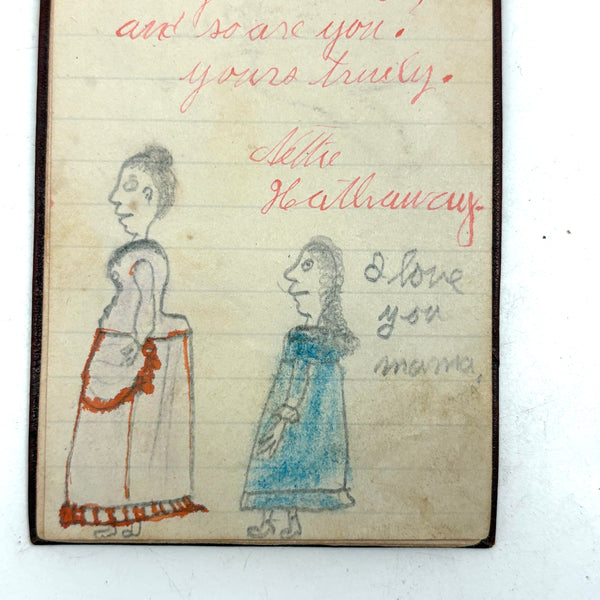 and so are you.
yours truely.
Nettie
Hathaway.
I love
you
mama,